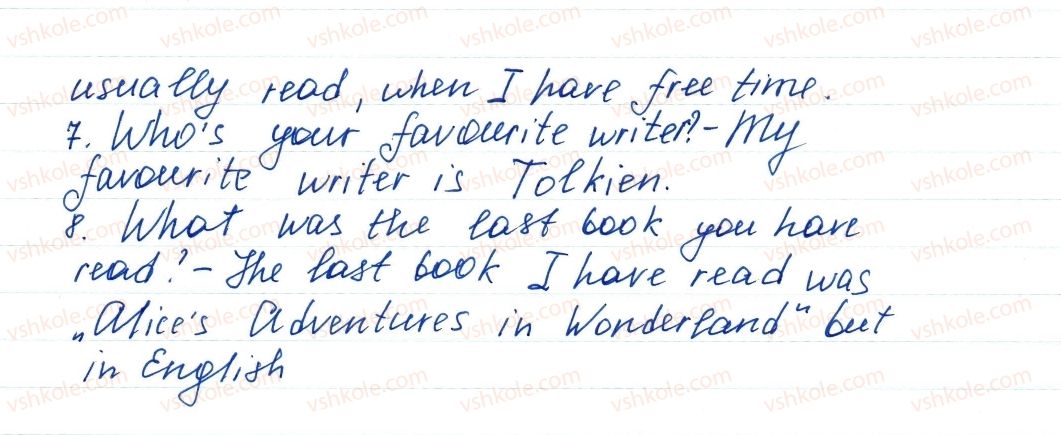 usually read, when I have free time.
7. Who's your favourite writer? - My
favourite writer is Tolkien.
8. What was the last book you have
read? - The last book I have read was
„Alice's Adventures in Wonderland" but
in English